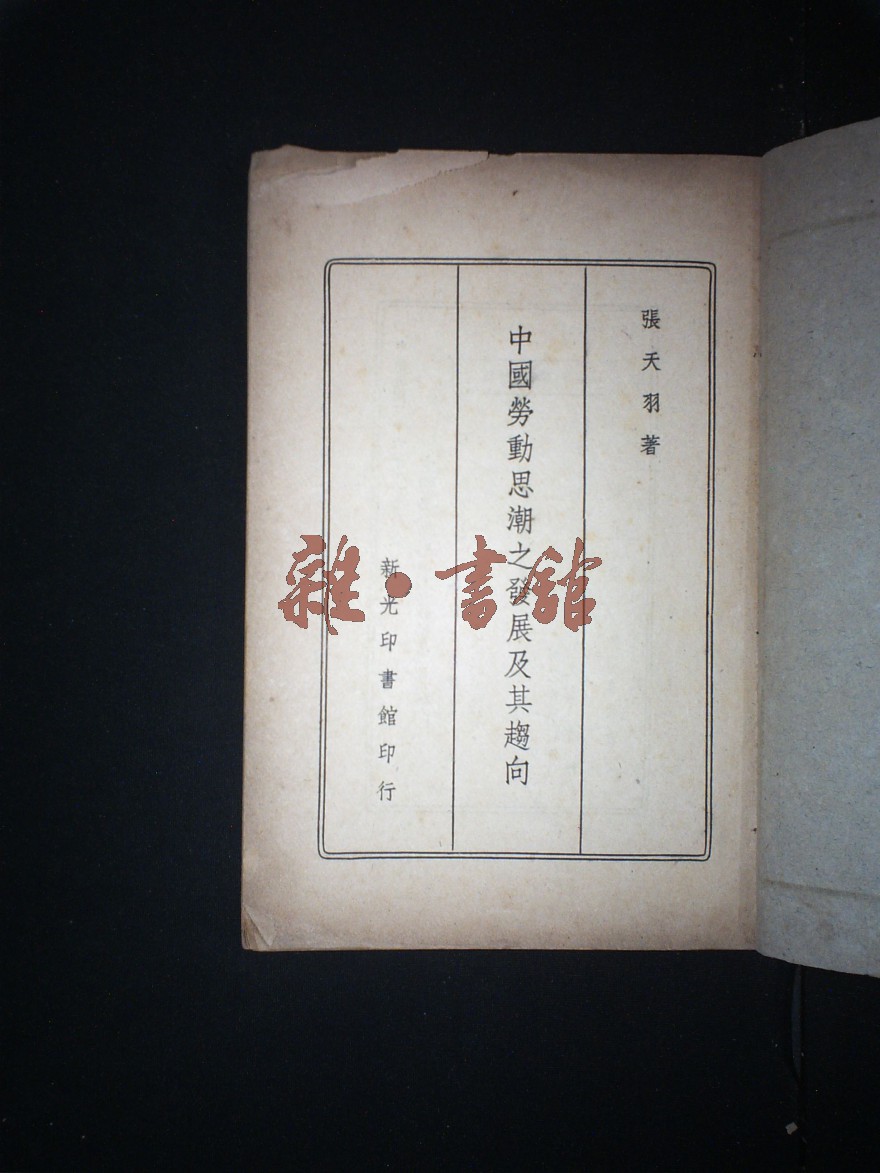 張天羽著
中國勞動思潮之發展及其趨向
新光印書館印行
雜·書舘